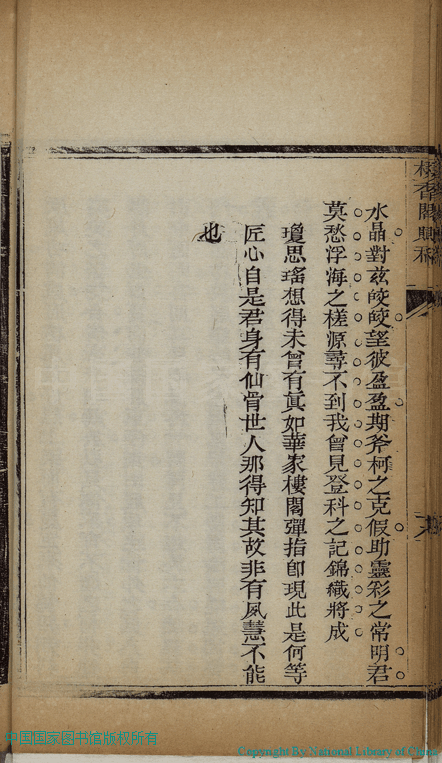 水晶對茲皎皎望彼盈盈期斧柯之克假助靈彩之常明君
莫愁浮海之槎源尋不到我曾見登科之記錦織將成
瓊思瑤想得未曾有真如華家樓閣彈指即現此是何等
匠心自是君身有仙骨世人那得知其故非有夙慧不能
也
中国国家图书馆版权所有
Copyright By National Library of China